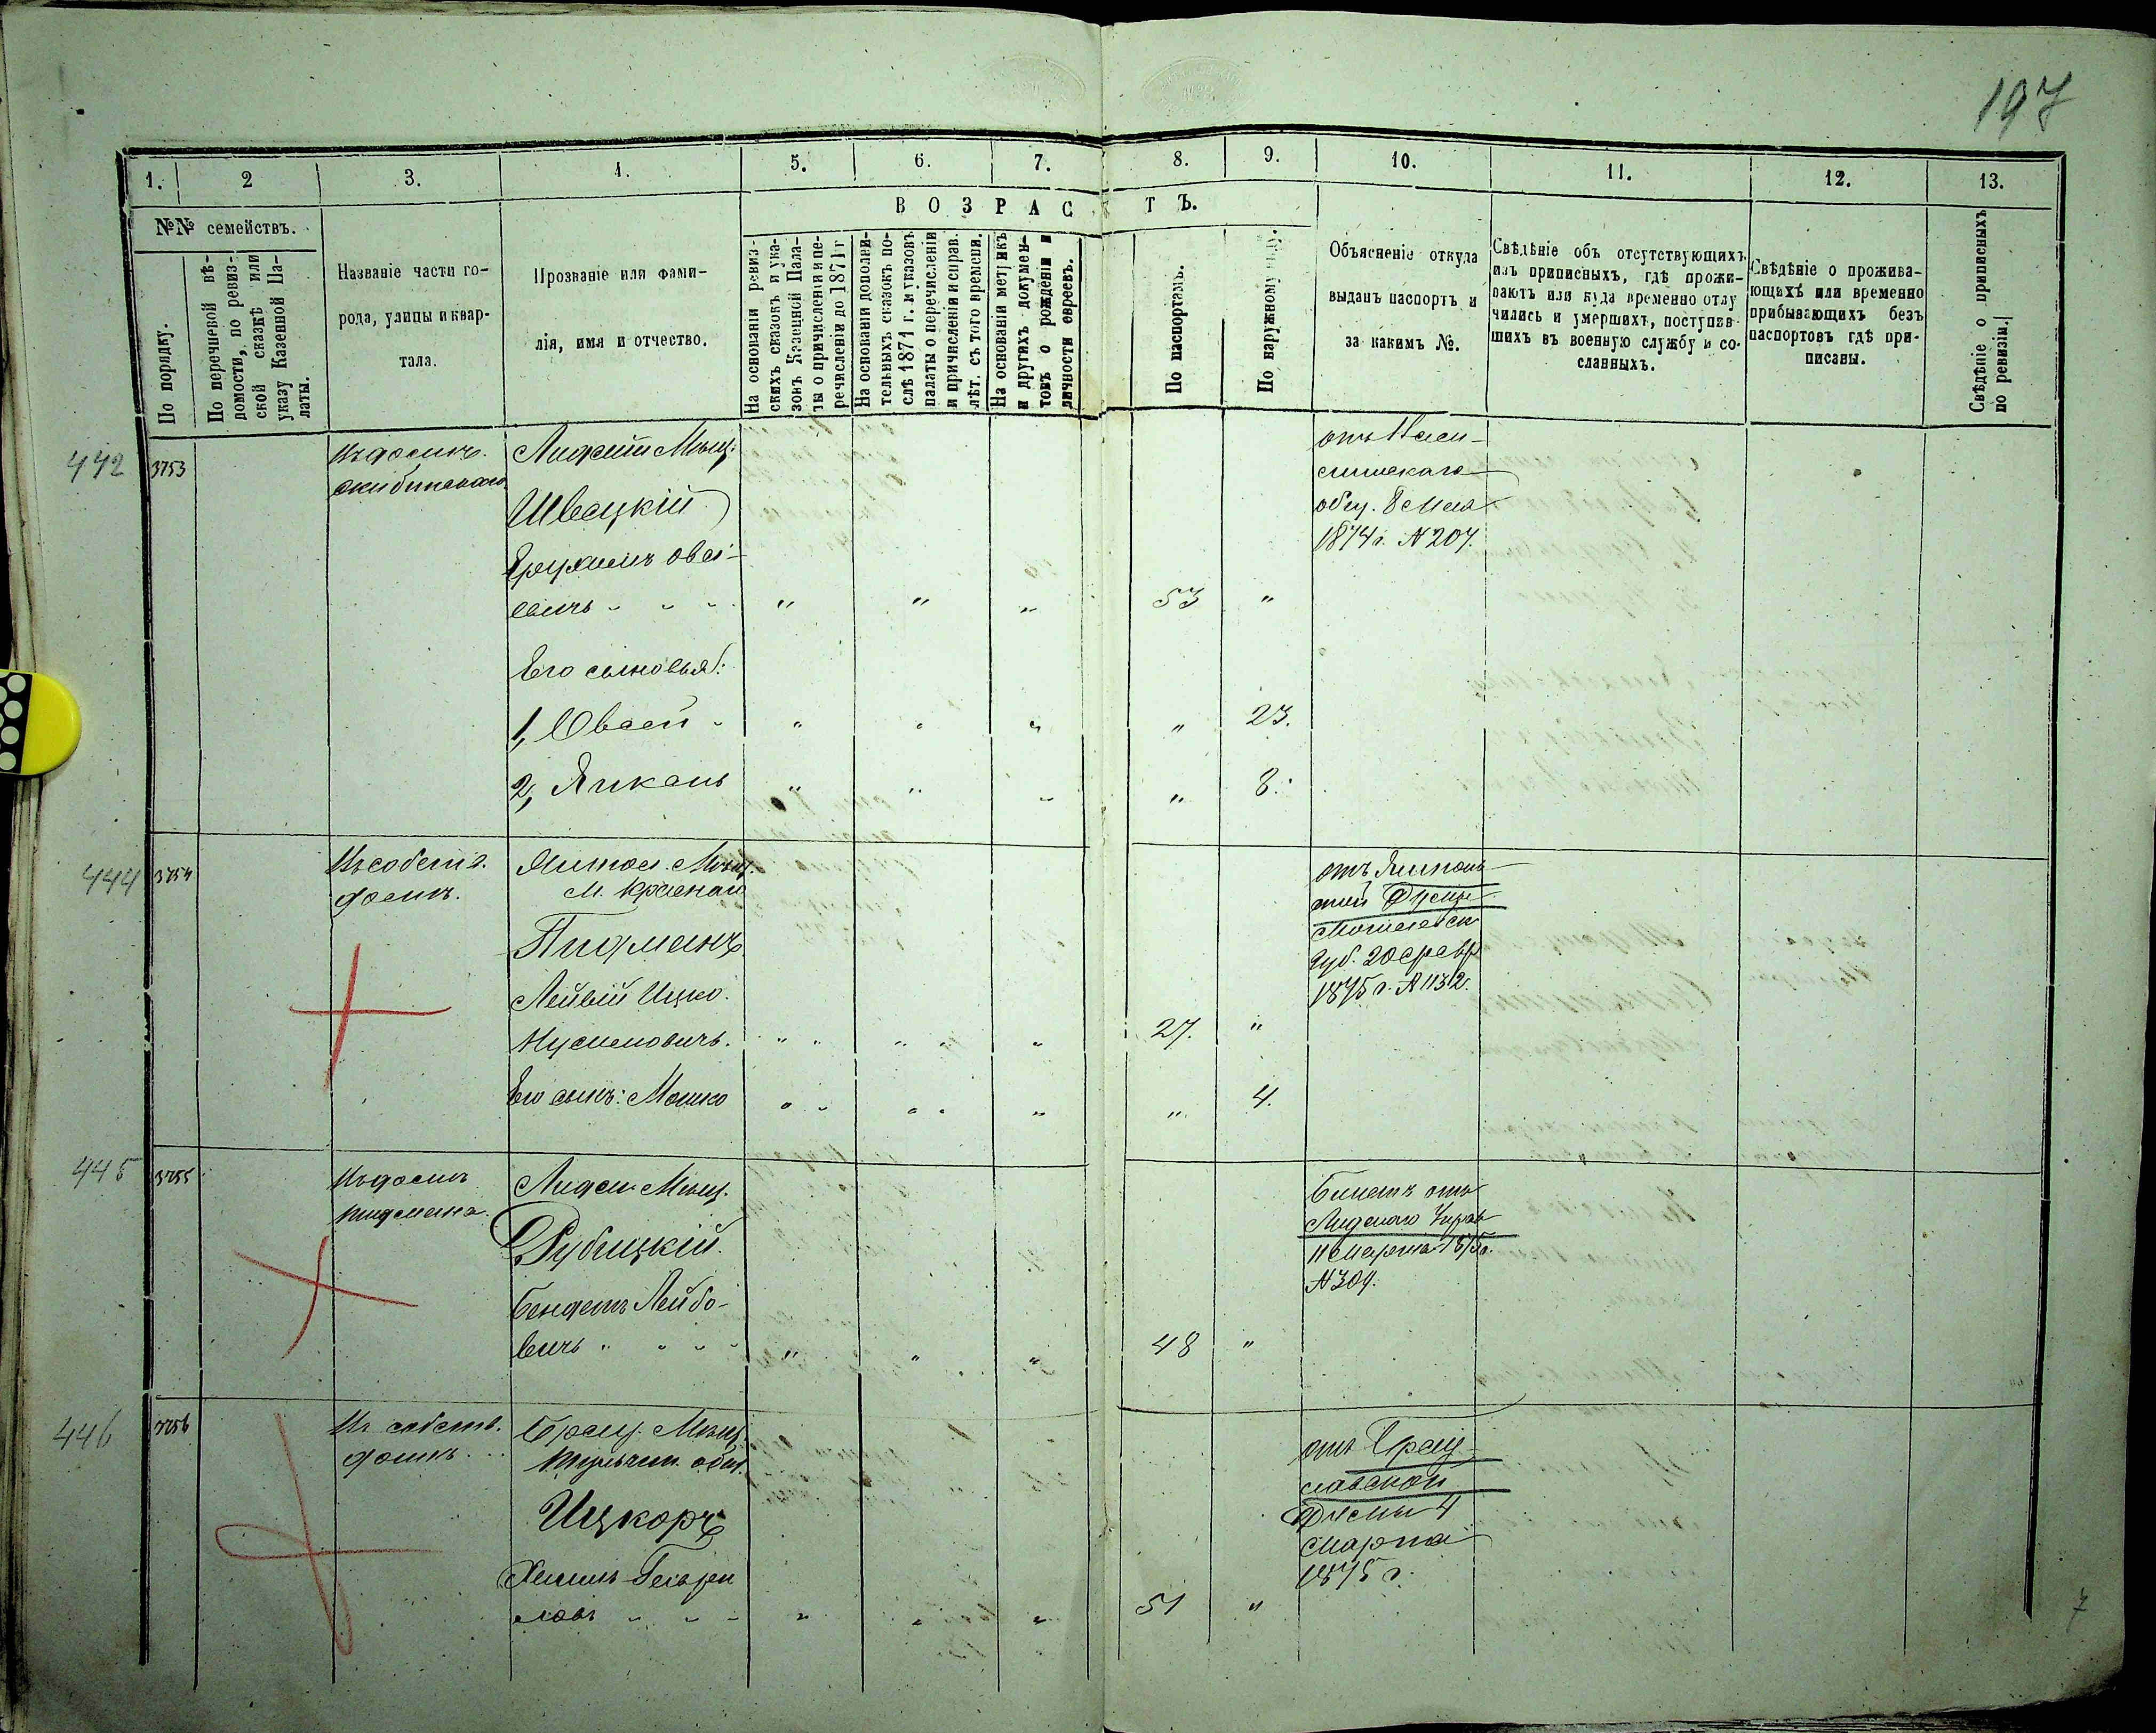 197
1. 2 3. 4. 5. 6. 7. 8. 9. 10. 11. 12. 13.
ВОЗРАСТЪ.
№№ семействъ.
По порядку.
По перечневой вѣ-
домости, по ревиз-
ской сказкѣ или
указу Казенной Па-
латы.
Названіе части го-
рода, улицы и квар-
тала.
Прозваніе или фами-
лія, имя и отчество.
На основаніи ревиз-
скихъ сказокъ и ука-
зовъ Казенной Пала-
ты о причисленіи и пе-
речисленіи до 1871 г
На основаніи дополни-
тельныхъ сказокъ по-
слѣ 1871 г. и указовъ
палаты о перечисленіи
и причисленіи и справ.
лѣт. съ того времени.
На основаніи метрикъ
и другихъ докумен-
товъ о рожденіи и
личности евреевъ.
По паспортамъ.
По наружному виду.
Объясненіе откуда
выданъ паспортъ и
за какимъ №.
Свѣдѣніе объ отсутствующихъ
изъ приписныхъ, гдѣ прожи-
ваютъ или куда временно отлу
чились и умершихъ, поступив-
шихъ въ военную службу и со-
сланныхъ.
Свѣдѣніе о прожива-
ющихъ или временно
прибывающихъ безъ
паспортовъ гдѣ при-
писаны.
Свѣдѣніе о приписныхъ
по ревизіи.
442 3753
Швецкій
овсі-
евичъ " " " 53 "
1874 г. № 207.
Его сыновья:
1, Овсей " " " " 23.
2, Янкель " " " " 8.
444 3754
Въ собст.
домѣ.
Мѣщ.
Пидманъ
Лейвій Ицко
Нусимовичъ. " " " 27. "
Его сынъ: Мошко " " " " 4.
отъ
Думы
губ. 20 февр
1875 г. № 1132.
445 3755
Въ домѣ
Пидмана.
Лидск. Мѣщ.
Рубицкій.
Бендетъ Лейбо-
вичъ " " " " 48 "
Билетъ отъ
Лидскаго Управ
11 Марта 1875 г.
№ 304.
446 3756
Въ собств.
домѣ.
Брац. Мѣщ.
Тульчин. общ.
Ицкоръ
" " " 51 "
отъ Брац-
лавской
Думы 4
Марта
1875 г.
7